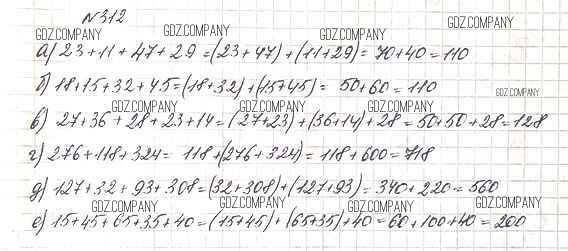 №312
GDZ.COMPANY GDZ.COMPANY GDZ.COMPANY
а) 23+11+47+29=(23+47)+(11+29)=70+40=110
GDZ.COMPANY GDZ.COMPANY GDZ.COMPANY
б) 18+15+32+45=(18+32)+(15+45)= 50+60=110
GDZ.COMPANY
GDZ.COMPANY GDZ.COMPANY GDZ.COMPANY
в) 27+36+28+23+14=(27+23)+(36+14)+28=50+50+28=128
GDZ.COMPANY GDZ.COMPANY GDZ.COMPANY
г) 276+118+324= 118+(276+324)=118+600=718
GDZ.COMPANY GDZ.COMPANY GDZ.COMPANY
д) 127+32+93+308=(32+308)+(127+93)=340+220=560
GDZ.COMPANY GDZ.COMPANY GDZ.COMPANY
е) 15+45+65+35+40=(15+45)+(65+35)+40=60+100+40=200
GDZ.COMPANY GDZ.COMPANY GDZ.COMPANY